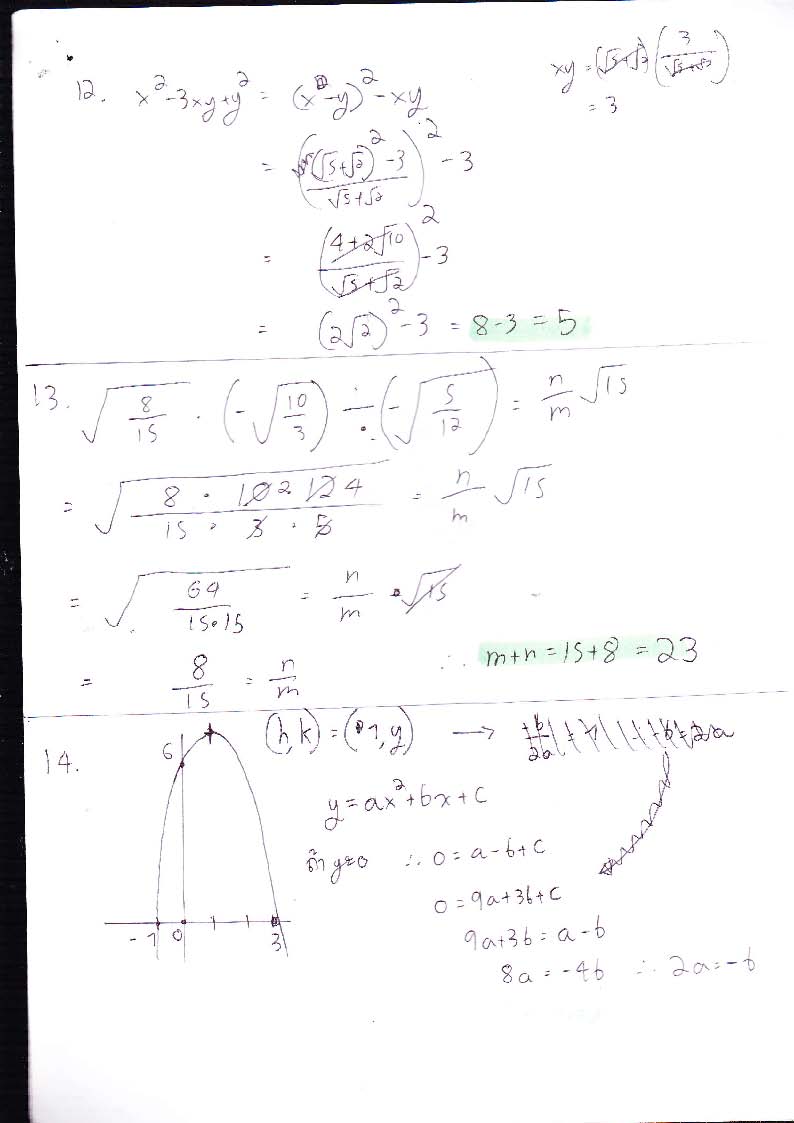 12. x² - 3xy + y² = (x - y)² - xy
xy = (√5+√2)(3/(√5+√2))
= 3
= (((√5+√2)² - 3)/(√5+√2))² - 3
= ((4+2√10)/(√5+√2))² - 3
= (2√2)² - 3 = 8-3 = 5
13. √(8/15) · (-√(10/3)) ÷ (-√(5/12)) = n/m √15
= √((8 · 10 2 12 4)/(15 · 3 · 5)) = n/m √15
= √(64/(15·15)) = n/m · √15
= 8/15 = n/m ∴ m+n = 15+8 = 23
14. (h,k) = (1,y) →
6
y = ax²+bx+c
ถ้า y=0 ∴ 0 = a-b+c
0 = 9a+3b+c
-1 0 3
9a+3b = a-b
8a = -4b ∴ 2a = -b